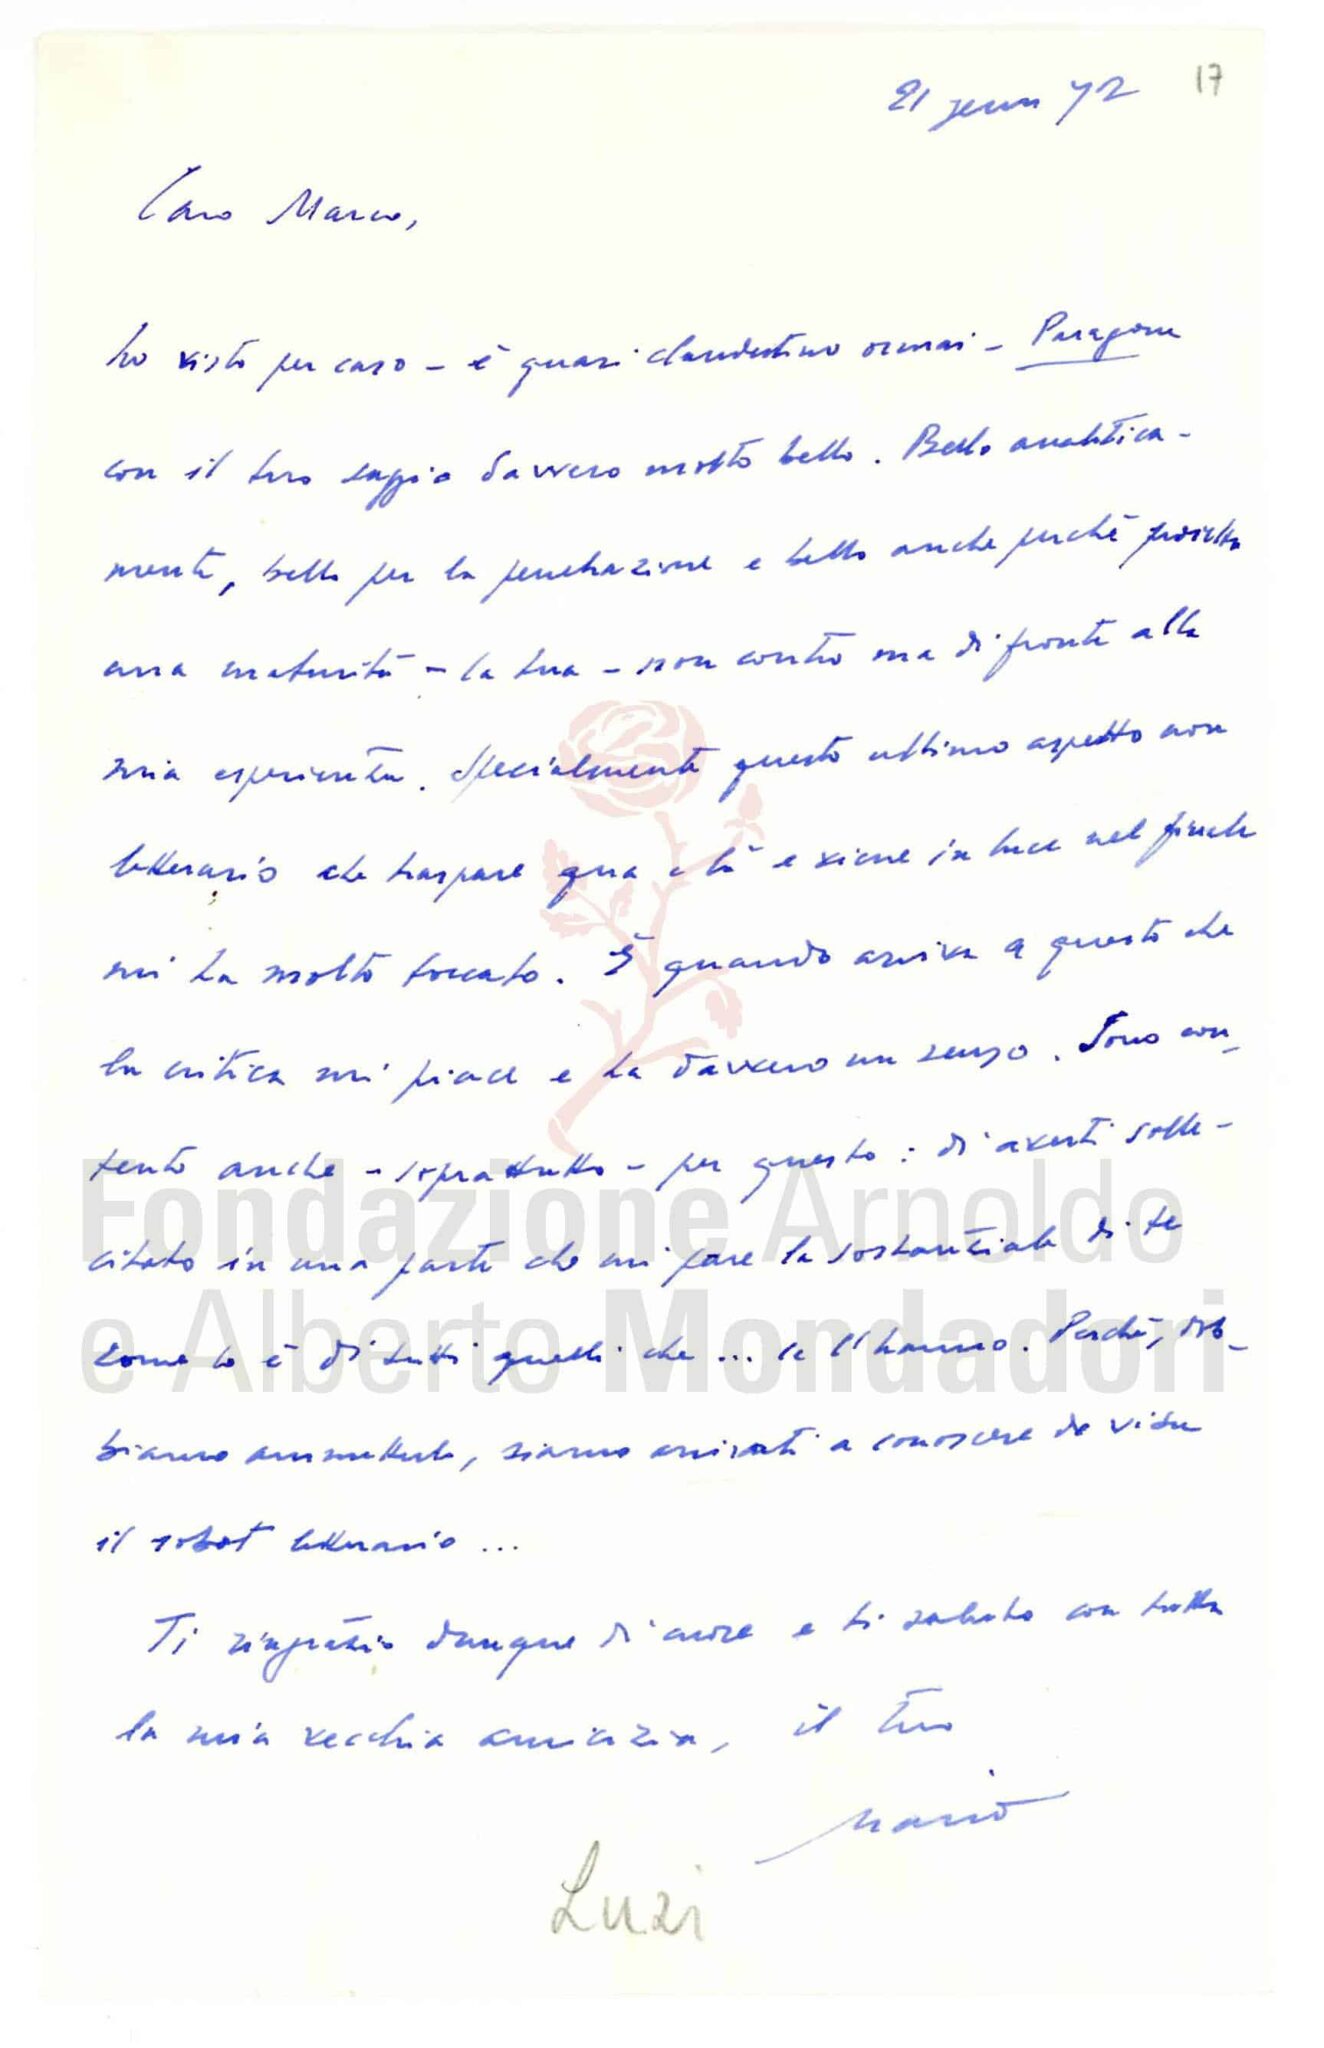 21 genn 72
17
Caro Marco,
ho visto per caso - è quasi clandestino ormai - Paragone
con il tuo saggio davvero molto bello. Bello analitica-
mente, bello per la penetrazione e bello anche perché proietta
una maturità - la tua - non contro ma di fronte alla
mia esperienza. Specialmente questo ultimo aspetto non
letterario che traspare qua e là e viene in luce nel finale
mi ha molto toccato. È quando arriva a questo che
la critica mi piace e ha davvero un senso. Sono con-
tento anche - soprattutto - per questo: di averti solle-
citato in una parte che mi pare la sostanziale di te
come lo è di tutti quelli che ... ce l'hanno. Perché, dob-
biamo ammetterlo, siamo arrivati a conoscere de visu
il robot letterario ...
Ti ringrazio dunque di cuore e ti saluto con tutta
la mia vecchia amicizia, il tuo
Mario
Luzi
Fondazione Arnoldo
e Alberto Mondadori